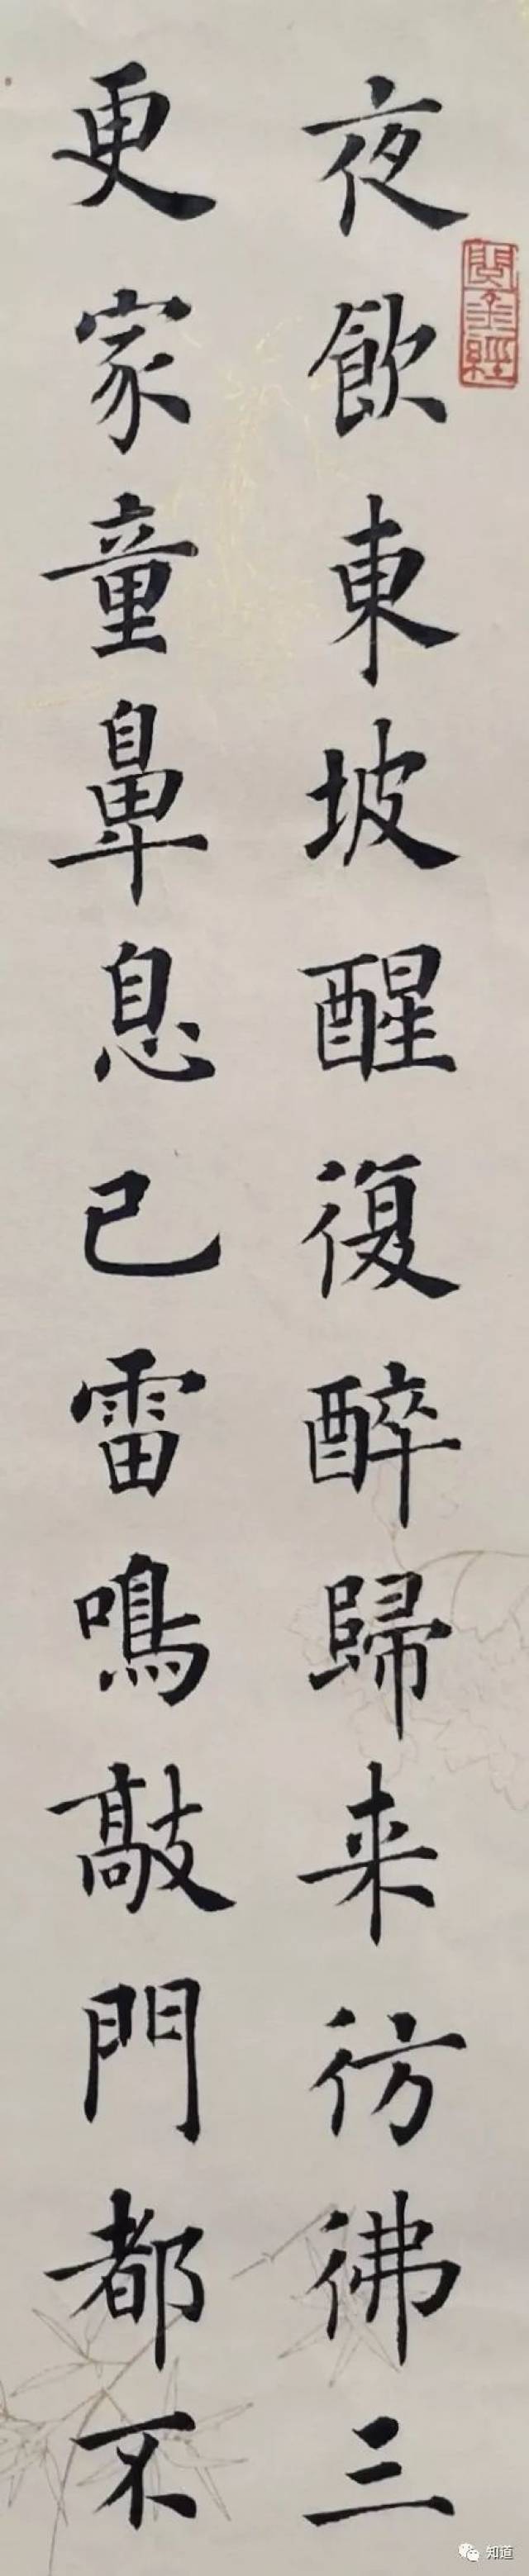 夜飲東坡醒復醉歸来彷彿三
更家童鼻息已雷鳴敲門都不
閱金經
知道